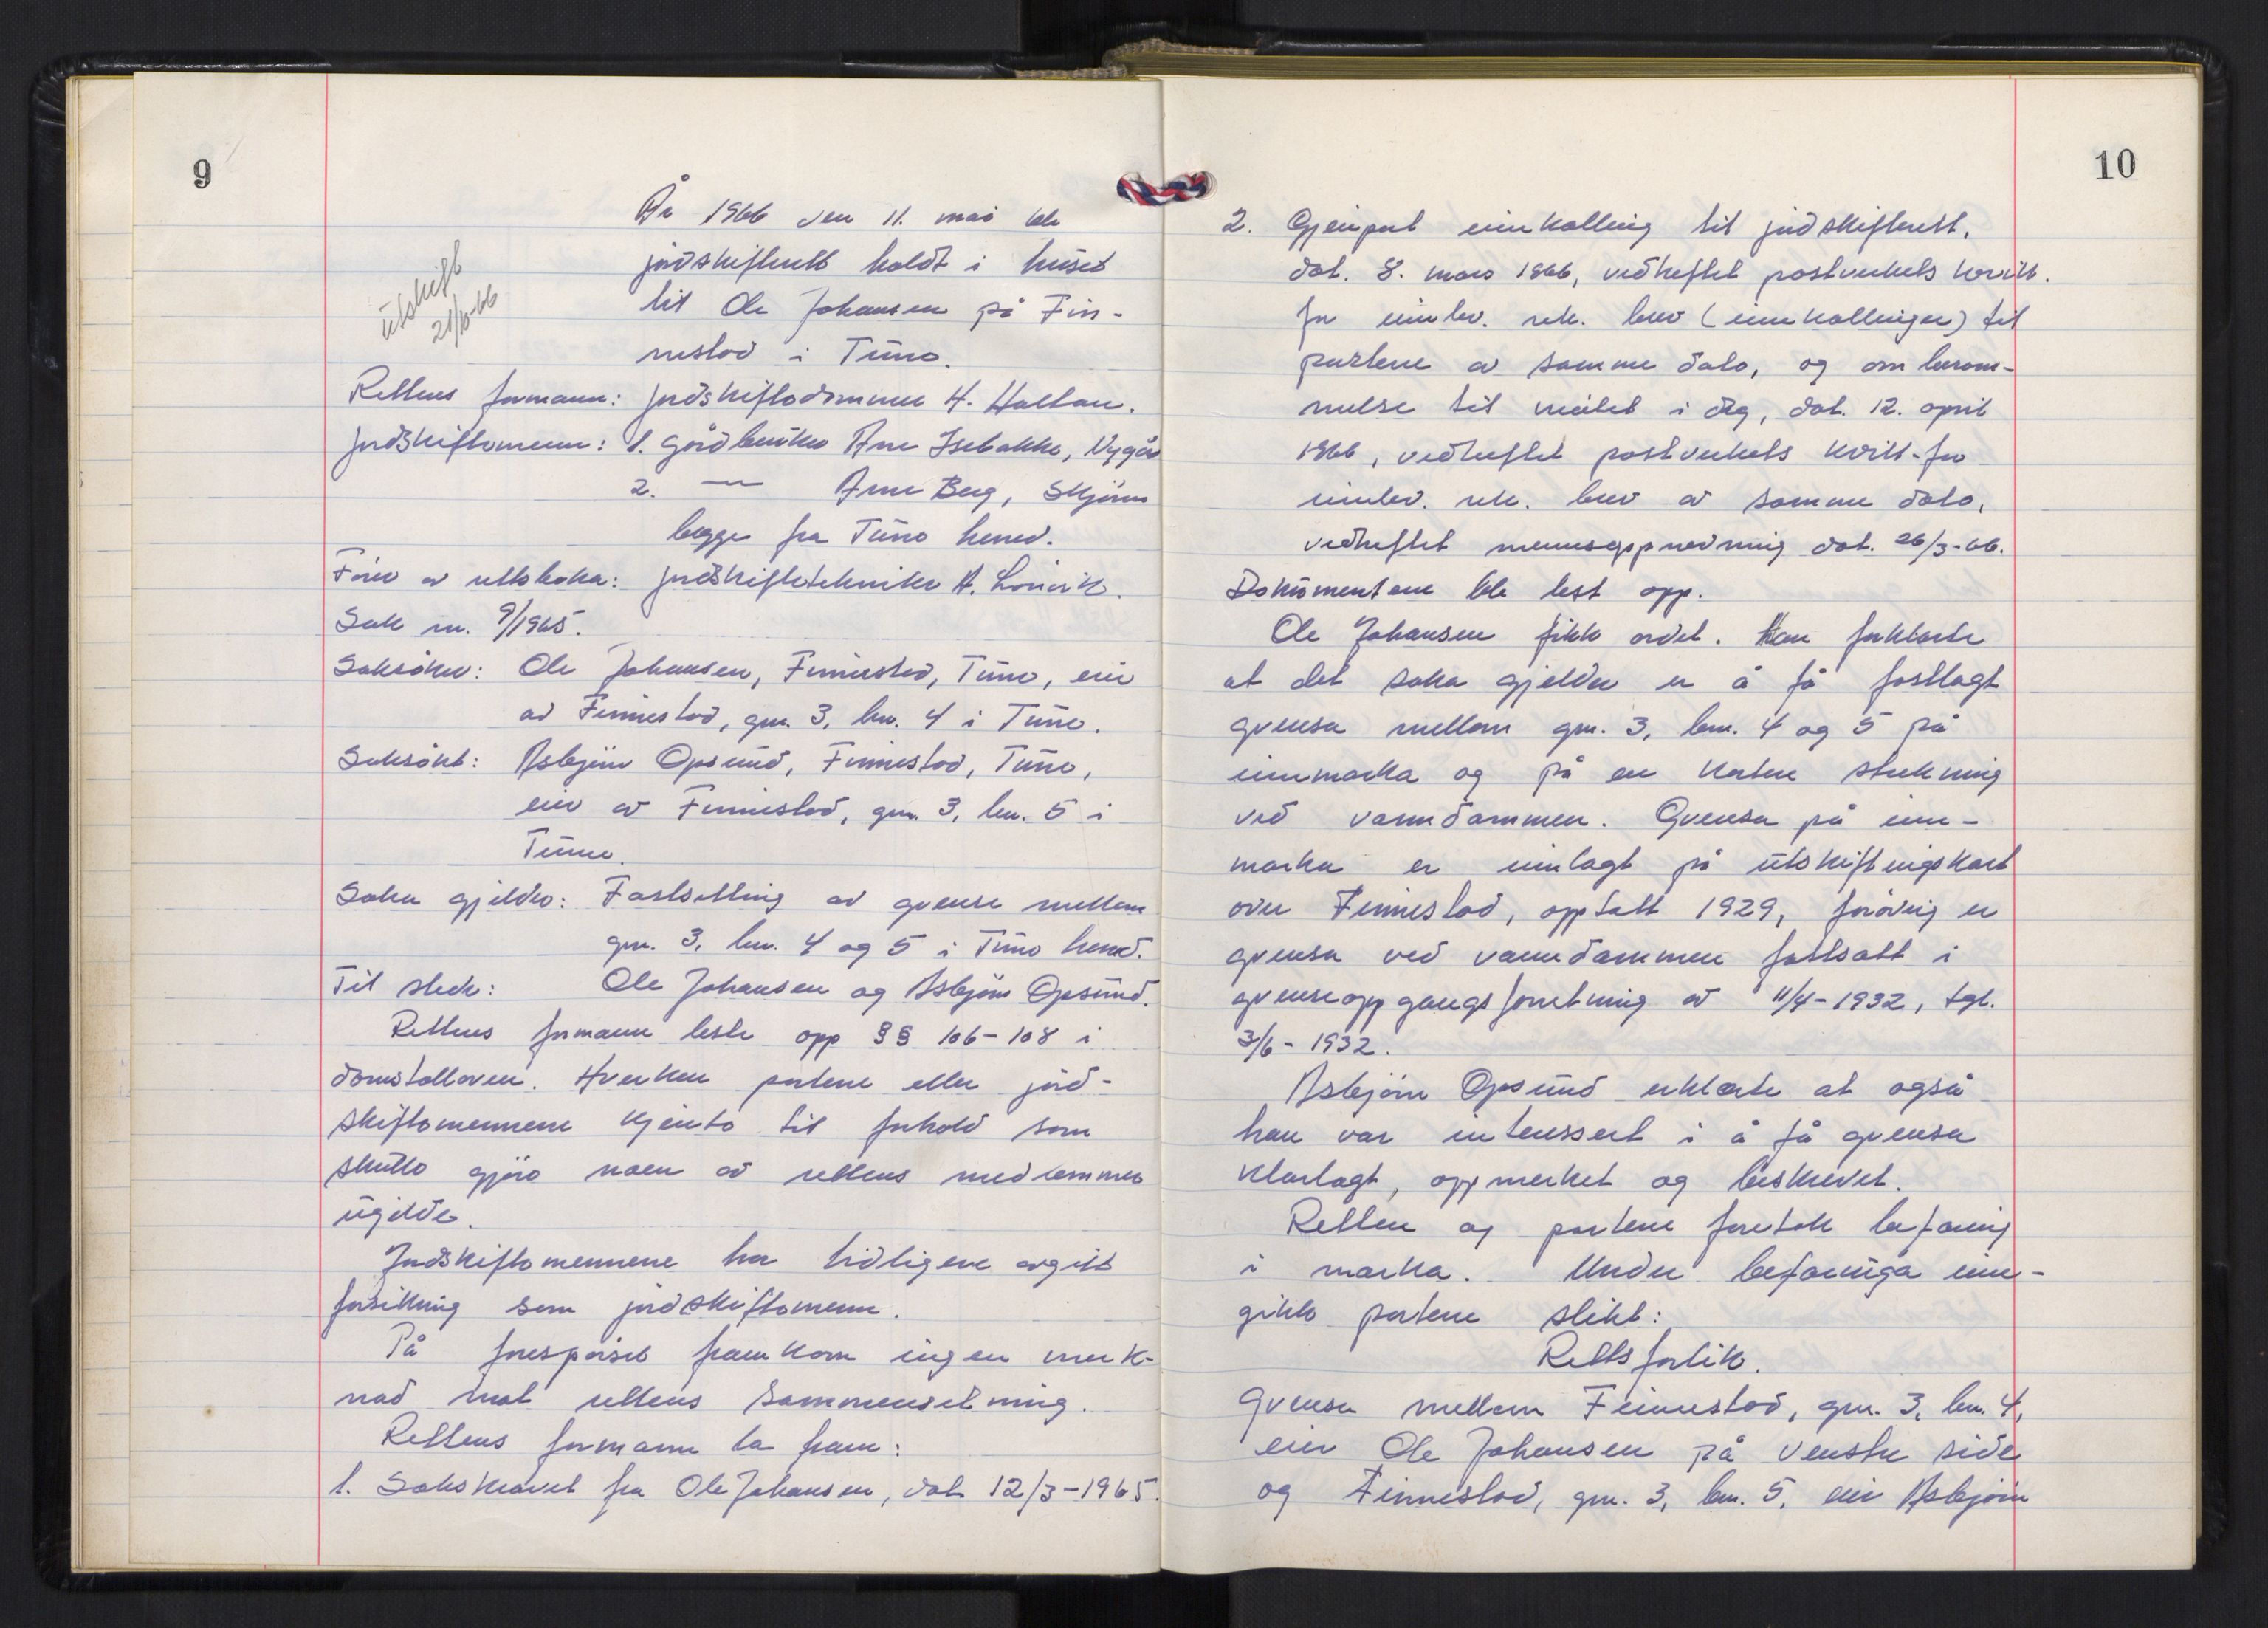 9
År 1966 den 11. mai ble
jordskifterett holdt i huset
til Ole Johansen på Fin-
nestad i Tune.
Utskrift
21/10-66
Rettens formann: Jordskiftedommer H. Haltau.
Jordskiftemenn: 1. Gårdbruker Arne Isebakke, Nygår
2. — Arne Berg, Skjønn
begge fra Tune herred.
Fører av rettsboka: Jordskiftetekniker A. Lorvik.
Sak nr. 9/1965.
Saksøker: Ole Johansen, Finnestad, Tune, eier
av Finnestad, gnr. 3, bnr. 4 i Tune.
Saksøkt: Asbjørn Opsund, Finnestad, Tune,
eier av Finnestad, gnr. 3, bnr. 5 i
Tune.
Saka gjelder: Fastsetting av grense mellom
gnr. 3, bnr. 4 og 5 i Tune herred.
Til stede: Ole Johansen og Asbjørn Opsund.
Rettens formann leste opp §§ 106-108 i
domstolloven. Hverken partene eller jord-
skiftemennene kjente til forhold som
skulle gjøre noen av rettens medlemmer
ugilde.
Jordskiftemennene har tidligere avgitt
forsikring som jordskiftemenn.
På forespørsel framkom ingen merk-
nad mot rettens sammensetning.
Rettens formann la fram:
1. Sakskravet fra Ole Johansen, dat 12/3-1965.
10
2. Gjenpart innkalling til jordskifterett,
dat. 8. mars 1966, vedheftet postverkets kvitt.
for innlev. rek. brev (innkallinger) til
partene av samme dato, og om beram-
melse til møtet i dag, dat. 12. april
1966, vedheftet postverkets kvitt. for
innlev. rek. brev av samme dato,
vedheftet mennsoppnevning dat. 26/3-66.
Dokumentene ble lest opp.
Ole Johansen fikk ordet. Han forklarte
at det saka gjelder er å få fastlagt
grensa mellom gnr. 3, bnr. 4 og 5 på
innmarka og på en kortere strekning
ved vanndammen. Grensa på inn-
marka er innlagt på utskiftingskart
over Finnestad, opptatt 1929, forøvrig er
grensa ved vanndammen fastsatt i
grenseoppgangsforretning av 11/4-1932, tgl.
3/6-1932.
Asbjørn Opsund erklærte at også
han var interessert i å få grensa
klarlagt, oppmerket og beskrevet.
Retten og partene foretok befaring
i marka. Under befaringa inn-
gikk partene slikt:
Rettsforlik.
Grensa mellom Finnestad, gnr. 3, bnr. 4,
eier Ole Johansen på venstre side
og Finnestad, gnr. 3, bnr. 5, eier Asbjørn